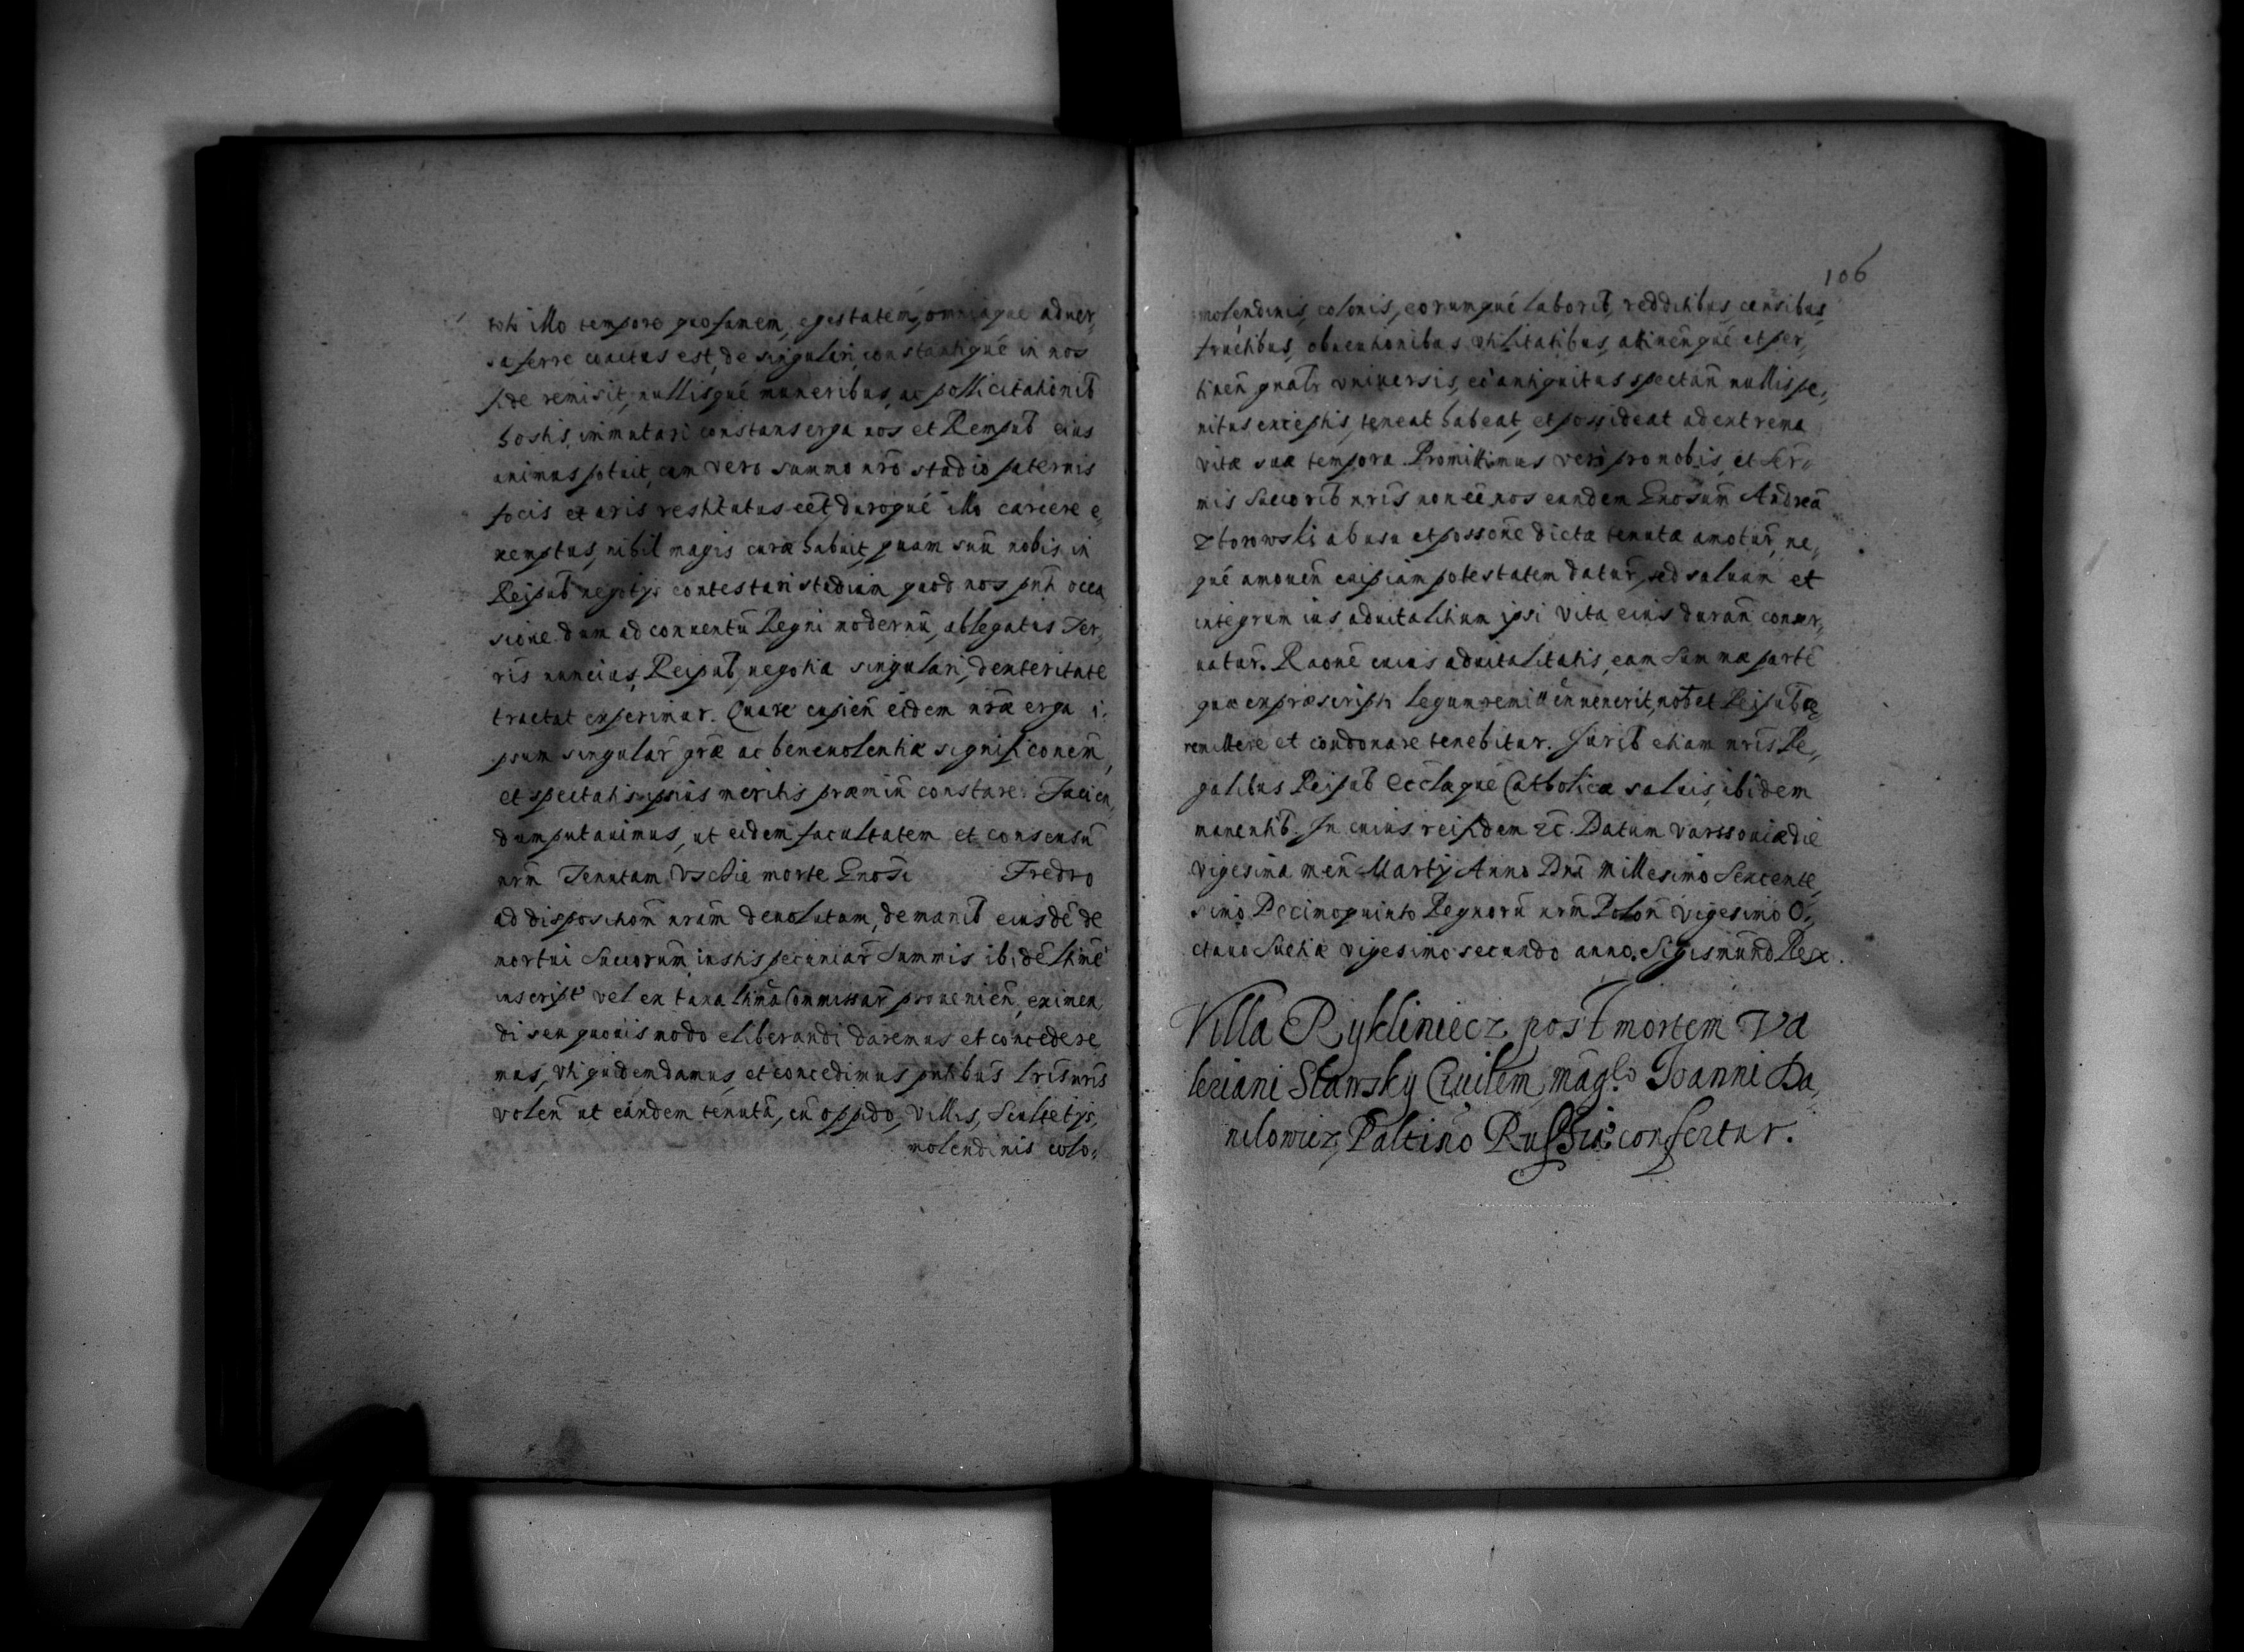 toto illo tempore quo famem, egestatem, omniaque aduer,
sa ferre coactus est, de singulari, constantiqué in nos
fide remisit, nullisqué muneribus, ac pollicitationib̃
hostis, immutari constans erga nos et Rempub̃ eius
animus potuit, cum vero summo nr̃o studio paternis
focis et aris restitutus eẽt, duroqué illo carcere e,
xemptus, nihil magis curæ habuit, quam suũ nobis in
Reipub̃ negotys contestari studium, quod nos pñti occa
sione dum ad conuentũ Regni modernũ, ablegatus Ter,
ris nuncius, Reipub̃, negotia singulari, dexteritate
tractat experimur. Quare cupieñ eidem nr̃æ erga i,
psum singular̃ gr̃æ ac beneuolentiæ significonem̃,
et spectatis ipsius meritis præmiũ constare. Facien,
dum putauimus, ut eidem facultatem et consensũ
nrm̃ Tenutam Vscie morte Gnosi Fredro
ad disposithom̃ nram̃ deuolutam, de manib̃ eiusdẽ de
mortui Succorum̃, iustis pecuniar̃ summis ibidẽ ltimẽ
inscript̃ vel ex taxa ltima Commissar̃ prouenieñ, eximen,
di seu quouis modo eliberandi daremus et concedere
mus, vti quidem damus, et concedimus pñtibus̃ lris̃ nris̃
voleñ ut eandem tenutã, cũ oppido, villis, Scultetys,
molendinis colo,
106
molendinis, colonis, eorumqué laborib̃, redditibus, censibus,
fructibus, obuentionibus vtilitatibus, attineñqué et per,
tineñ gnalr̃ vniuersis, eò antiquitus spectañ nullis pe,
nitus exceptis, teneat habeat, et possideat ad extrema
vitæ suæ tempora. Promittimus verò pro nobis, et Ser,
mis Succorib̃ nris̃ non eẽ nos eundem Gnosum̃ Andreã
Zborowski ab usu et possone dictæ tenutæ amotur̃, ne,
qué amoueñ cuipiam potestatem datur̃, sed saluum et
integrum ius aduitalitium ipsi vita eius durañ conser,
uatur̃. Raone cuius aduitalitatis, eam summæ partẽ
quæ ex præscripto legum remitteñ uenerit, nob̃ et Reipub̃æ,
remittere et condonare tenebitur. Jurib̃ etiam nris̃ Re,
galibus Reipub̃ Ecclæqué Catholicæ saluis, ibidem
manentib̃. In cuius rei fidem &c̃. Datum Varssouiæ die
vigesima meñ Martij Anno Dnĩ Millesimo Sexcente,
simo Decimoquinto Regnorũ nrm̃ Poloñ Vigesimo O,
ctauo Suetiæ vigesimo secundo anno. Sigismund Rex.
Villa Rykliniecz post mortem Va
leriani Slawsky Ciuilem, mãgco Ioanni Da,
nilowicz, Paltiño Russiæ confertur.